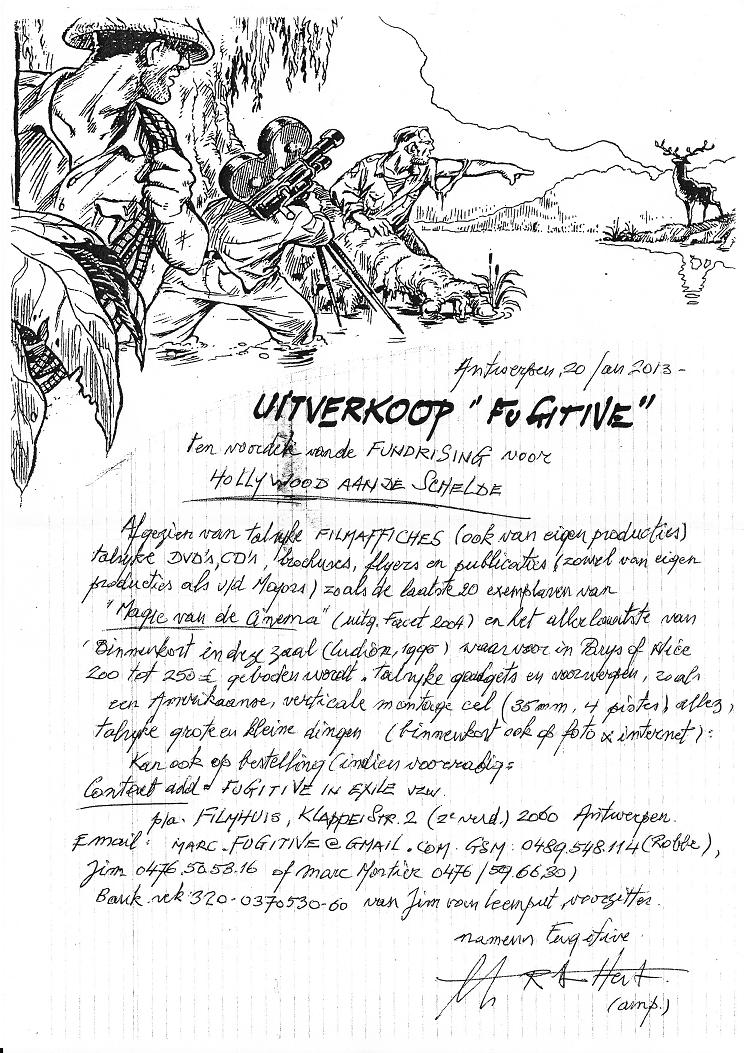 Antwerpen, 20 Jan 2013-
UITVERKOOP "FUGITIVE"
Ten voordele van de FUNDRISING voor
HOLLYWOOD AAN DE SCHELDE
Afgezien van talrijke FILMAFFICHES (ook van eigen producties)
talrijke DVD's, CD's, brochures, flyers en publicaties (zowel van eigen
producties als v/d Majors) zoals de laatste 20 exemplaren van
"Magic van de Cinema" (uitg. Facet 2004) en het allerlaatste van
'Binnenkort in deze zaal (Ludion, 1995) waarvoor in
200 tot 250 £ geboden wordt. talrijke gadgets en voorwerpen, zoals
een Amerikaanse, verticale montage cel (35mm, 4 pistes) allez,
talrijke grote en kleine dingen (binnenkort ook op foto & internet):
Kan ook op bestelling (indien voorradig:
Contact add: FUGITIVE IN EXILE vzw.
p/a. FILMHUIS, KLAPPEISTR. 2 (2e verd.) 2060 Antwerpen.
Email: MARC.FUGITIVE@GMAIL.COM. GSM: 0489.548.114 (Robbe),
Jim 0476.50.53.16 of Marc Mortier 0476/59.66.30)
Bank rek 320-0370530-60 van Jim van Leemput, voorzitter.
namens Fugitive
(amp.)